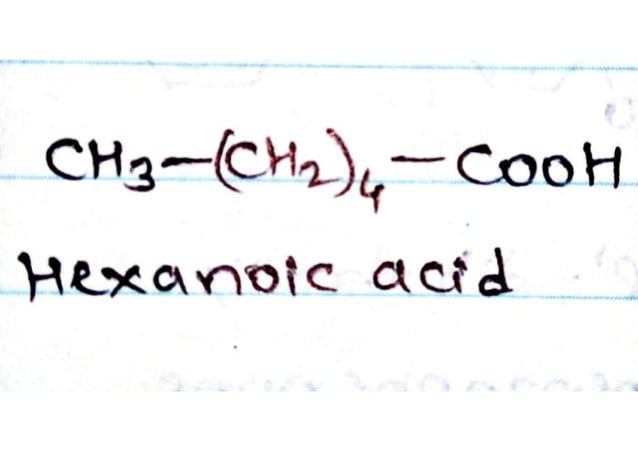 CH3-(CH2)4-COOH
Hexanoic acid